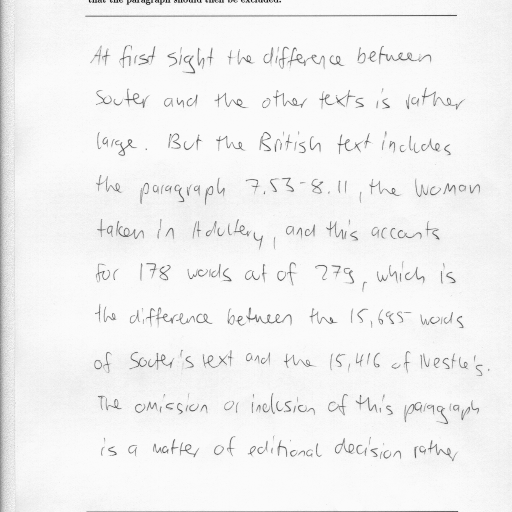 that the paragraph should then be excluded.
At first sight the difference between
Souter and the other texts is rather
large. But the British text includes
the paragraph 7.53-8.11, the Woman
taken in Adultery, and this accounts
for 178 words out of 279, which is
the difference between the 15,695 words
of Souter's text and the 15,416 of Nestle's.
The omission or inclusion of this paragraph
is a matter of editional decision rather